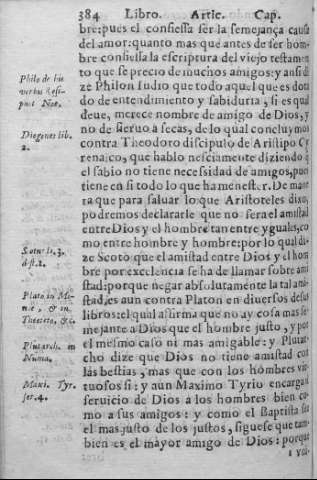 384 Libro. Artic. Cap.
bre: pues el confiessa ser la semejança causa
del amor: quanto mas que antes de ser hom-
bre confiessa la escriptura del viejo testamen
to que se precio de muchos amigos: y ansi di
ze Philon Iudio que todo aquel que es dota
do de entendimiento y sabiduria, si es qual
deue, merece nombre de amigo de Dios, y
no de sieruo a secas, de lo qual concluymos
contra Theodoro discipulo de Aristipo Cy
renaico, que hablo nesciamente diziendo q̃
el sabio no tiene necessidad de amigos, pues
tiene en si todo lo que ha menester. De mane
ra que para saluar lo que Aristoteles dixo,
podremos declararle que no sera el amistad
entre Dios y el hombre tan entre yguales, co
mo entre hombre y hombre: por lo qual di-
ze Scoto que el amistad entre Dios y el hom
bre por excelencia se ha de llamar sobre ami
stad: porque negar absolutamente la tal ami-
stad, es aun contra Platon en diuersos de sus
libros: el qual affirma que no ay cosa mas se-
mejante a Dios que el hombre justo, y por
el mesmo caso ni mas amigable: y Plutar-
cho dize que Dios no tiene amistad con
las bestias, mas que con los hombres vir-
tuosos si: y aun Maximo Tyrio encarga el
seruicio de Dios a los hombres bien co-
mo a sus amigos: y como el Baptista sea
el mas justo de los justos, siguese que tam-
bien es el mayor amigo de Dios: porque
Philo de his
verbis Resi-
puit Noe.
Diogenes lib.
2.
Scotus li. 3.
dist. 2.
Plato in Me-
no, & in
Theeteto, &c.
Plutarch. in
Numa.
Maxi. Tyr.
ser. 4.